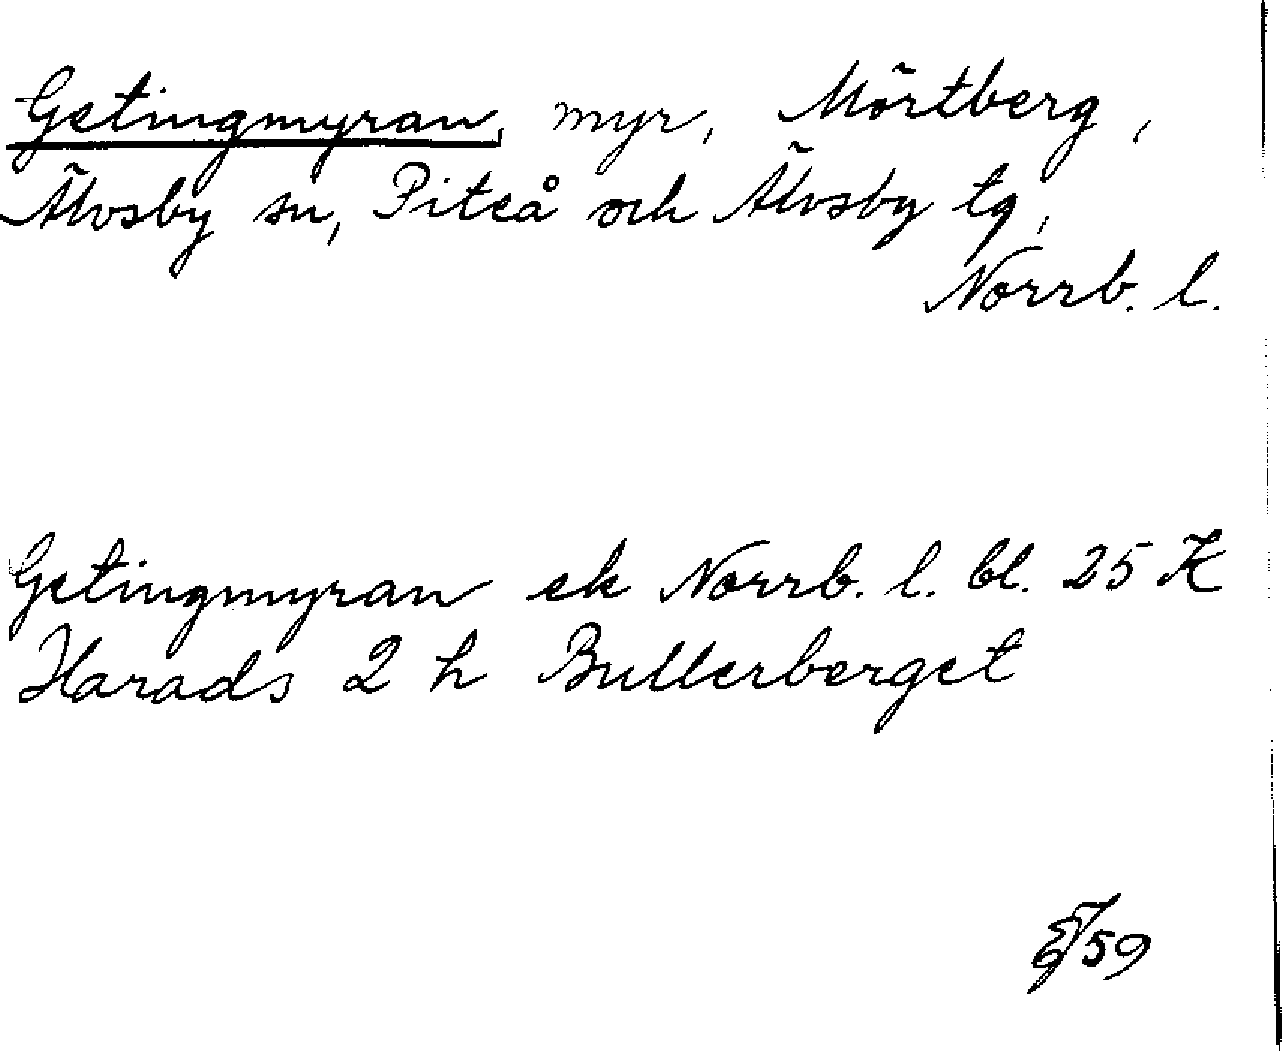 Getingmyran, myr, Mörtberg,
Älvsby sn, Piteå och Älvsby tg,
Norrb. l.
Getingmyran ek Norrb. l. bl. 25 K
Harads 2 h Bullerberget
59